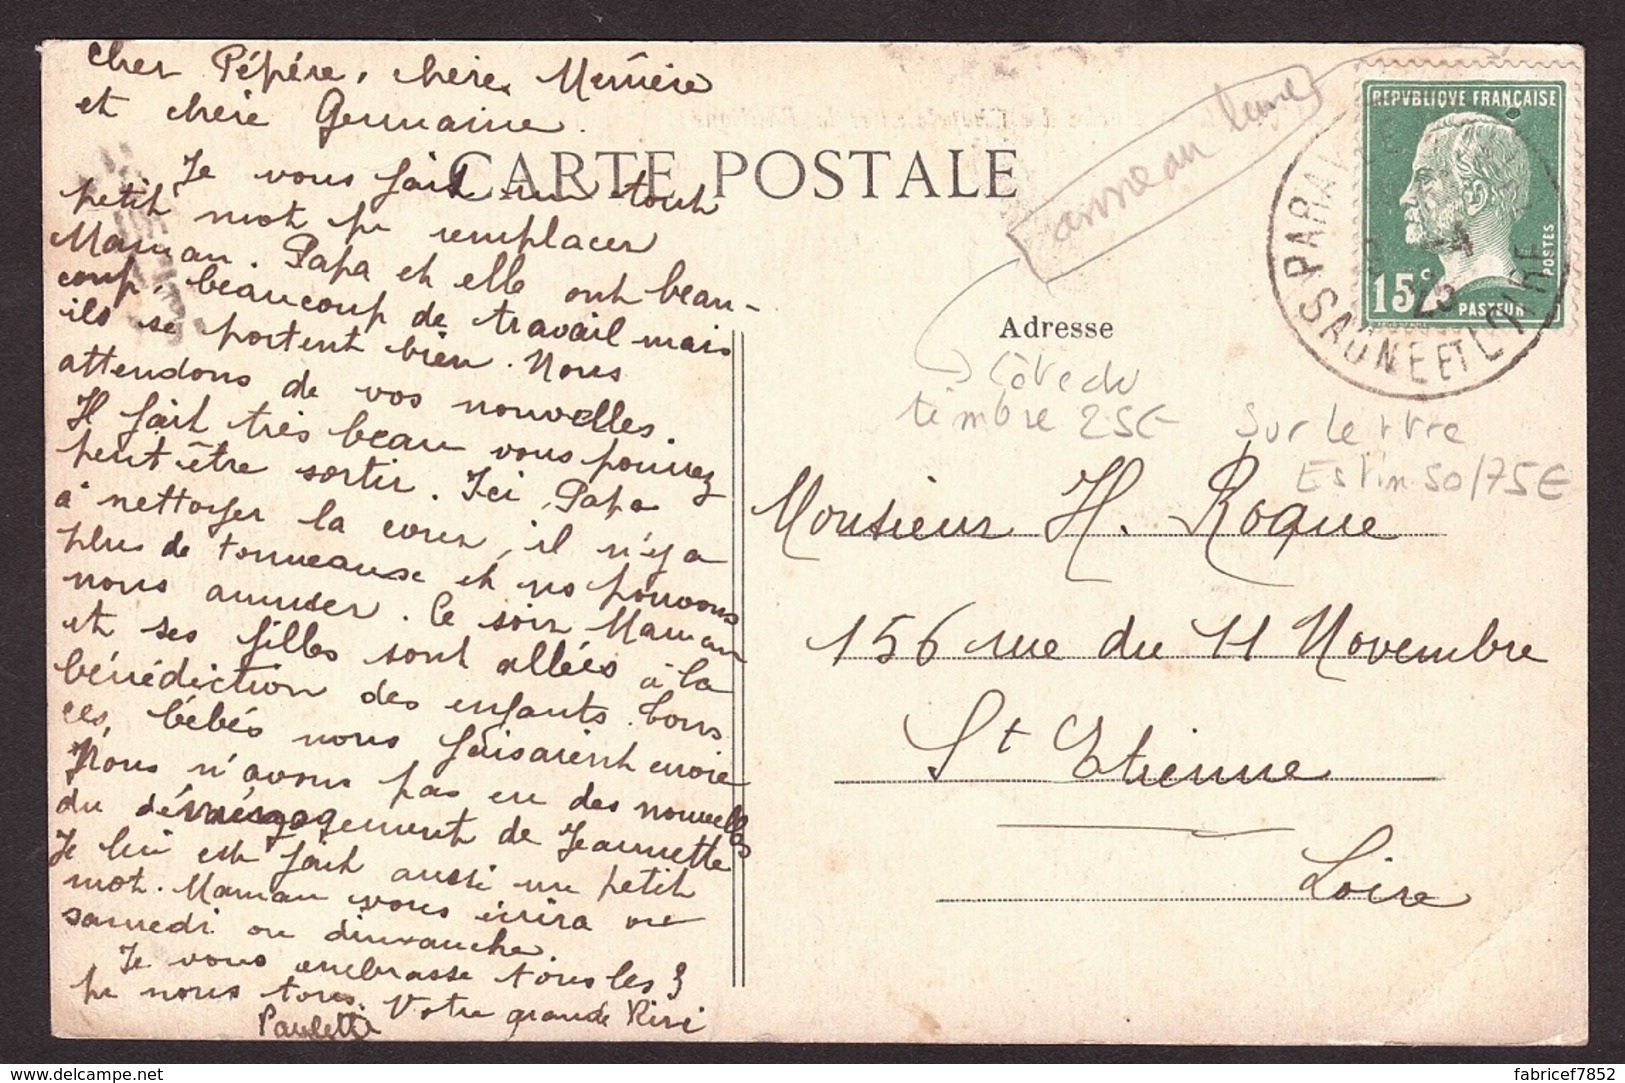 cher Pépère, chère Mémère
et chère Germaine.
Je vous fait un tout
petit mot pr remplacer
Maman. Papa et elle ont beau-
coup, beaucoup de travail mais
ils se portent bien. Nous
attendons de vos nouvelles.
Il fait très beau vous pourrez
peut-être sortir. Ici, Papa
a nettoyer la cour, il n'y a
plus de tonneaux et ns pouvons
nous amuser. Ce soir Maman
et ses filles sont allées à la
bénédiction des enfants. Tous
ces bébés nous faisaient envie
Nous n'avons pas eu des nouvelles
du déménagement de Jeannette
Je lui est fait aussi un petit
mot. Maman vous écrira
samedi ou dimanche.
Je vous embrasse tous les 3
pr nous tous. Votre grande
Paulette
CARTE POSTALE
anneau lune
Adresse
Côte du
timbre 25€
Sur lettre
Estim 50/75€
REPVBLIQVE FRANÇAISE
15c
POSTES
PASTEUR
PARAY LE
SAONE ET LOIRE
25
Monsieur H. Roque
156 rue du 11 Novembre
St Etienne
Loire
http://www.delcampe.net
fabricef7852